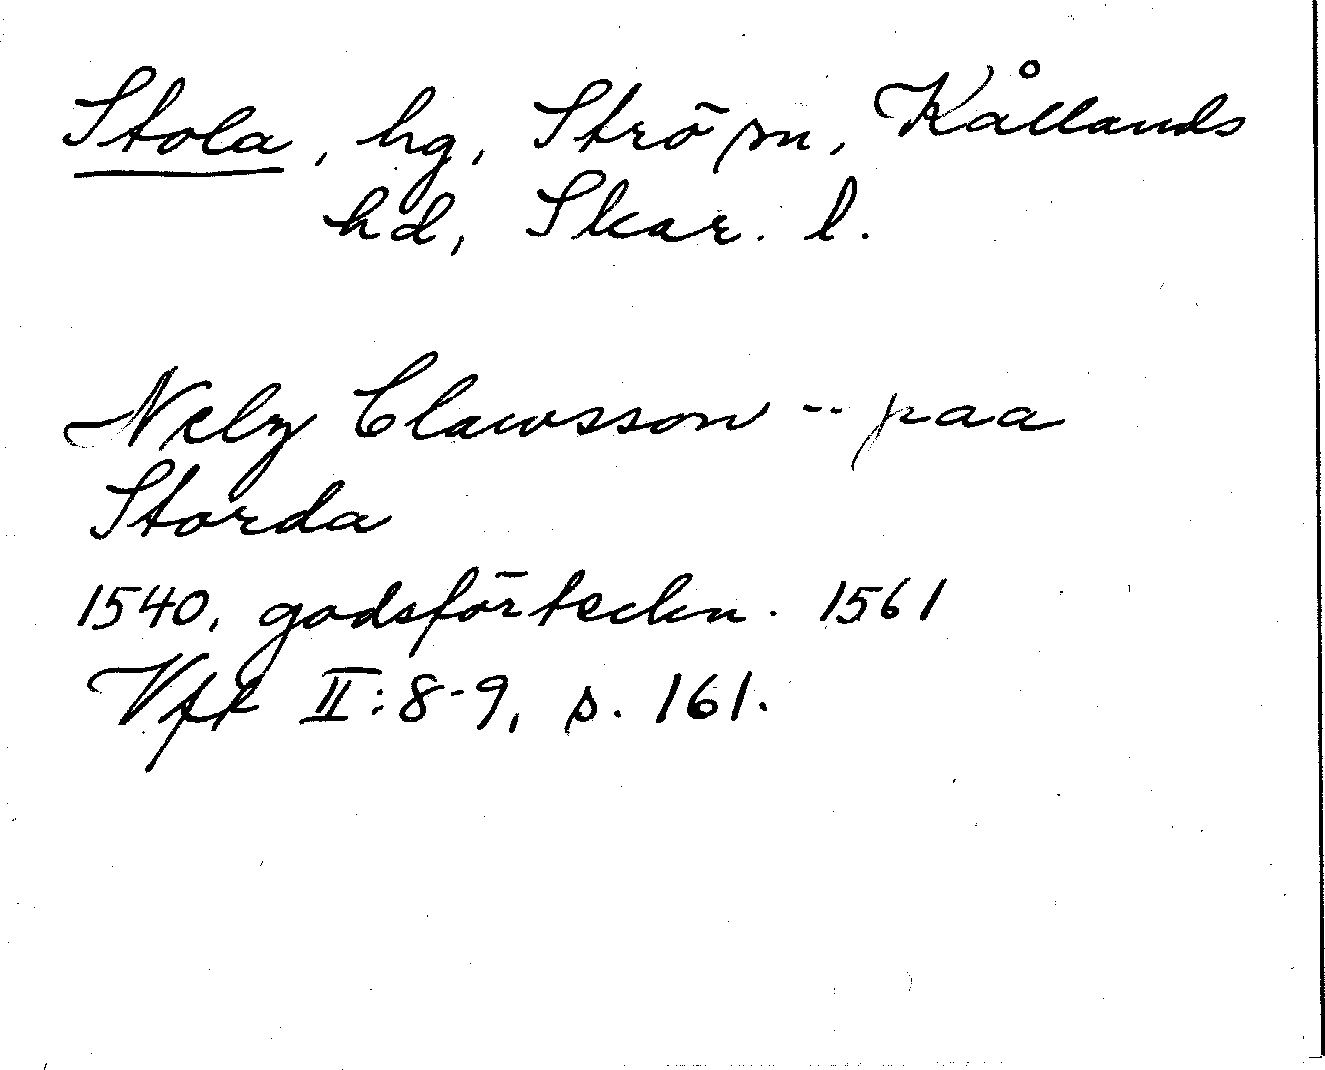 Stola, hg, Strö sn, Kållands
hd, Skar. l.
Nelz Clawsson -- paa
Storda
1540, godsförteckn. 1561
Vft II:8-9, s. 161.